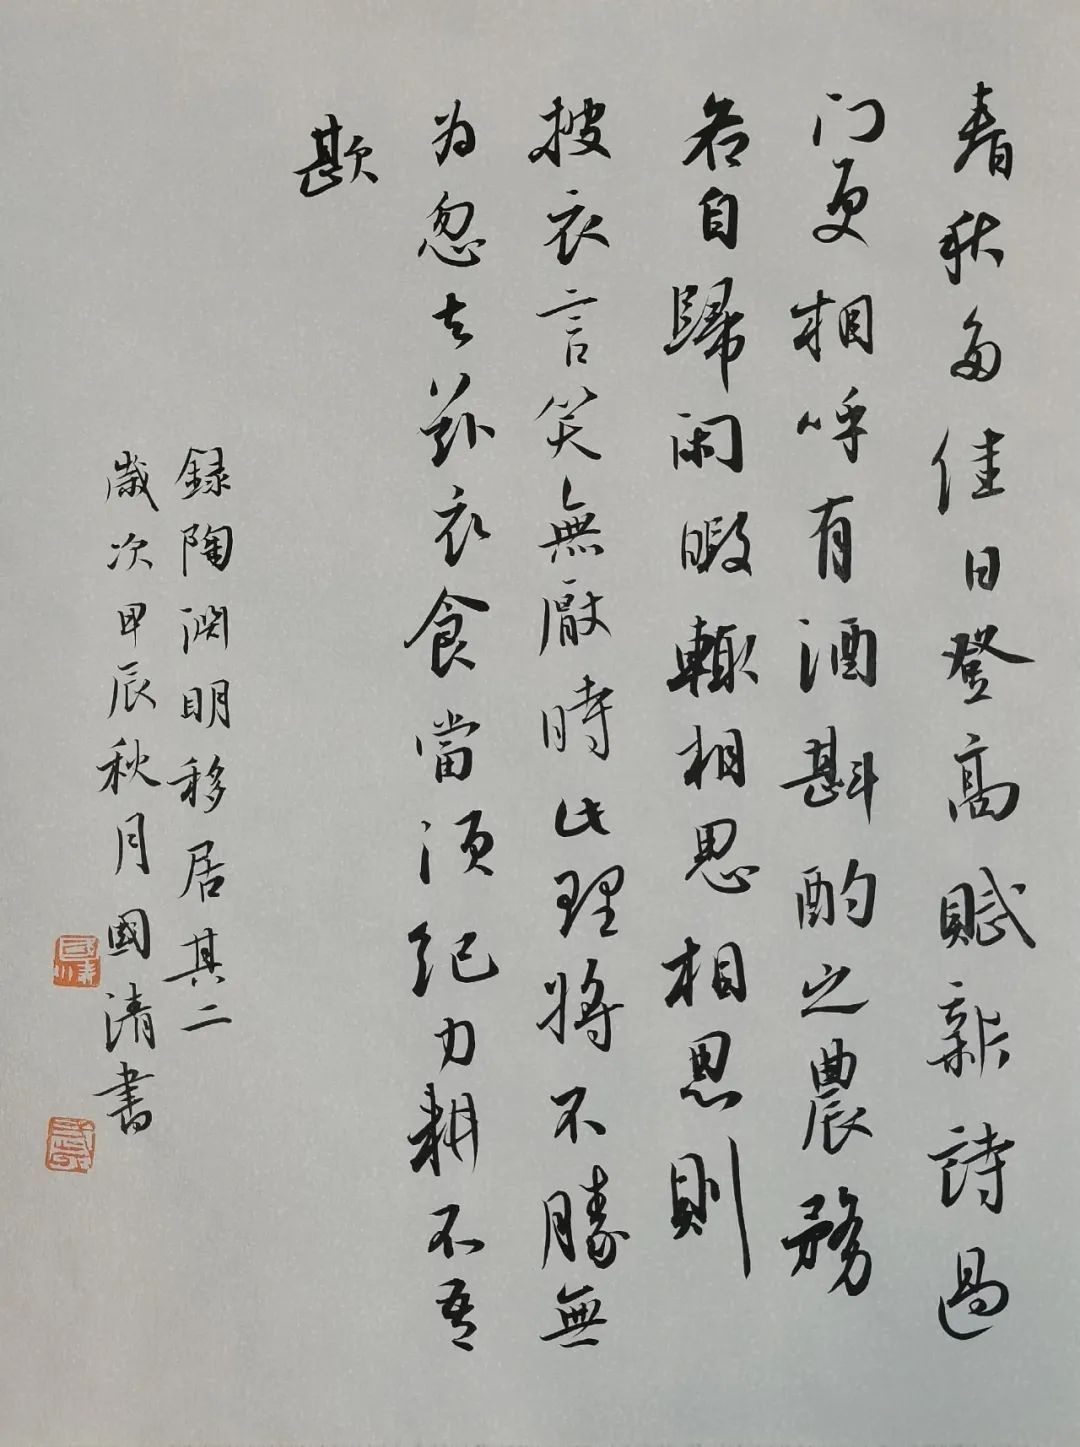 春秋多佳日登高賦新詩過
门更相呼有酒斟酌之農務
各自歸闲暇輒相思相思則
披衣言笑無厭時此理將不勝無
为忽去兹衣食當须纪力耕不吾
欺
録陶渊明移居其二
歲次甲辰秋月國清書